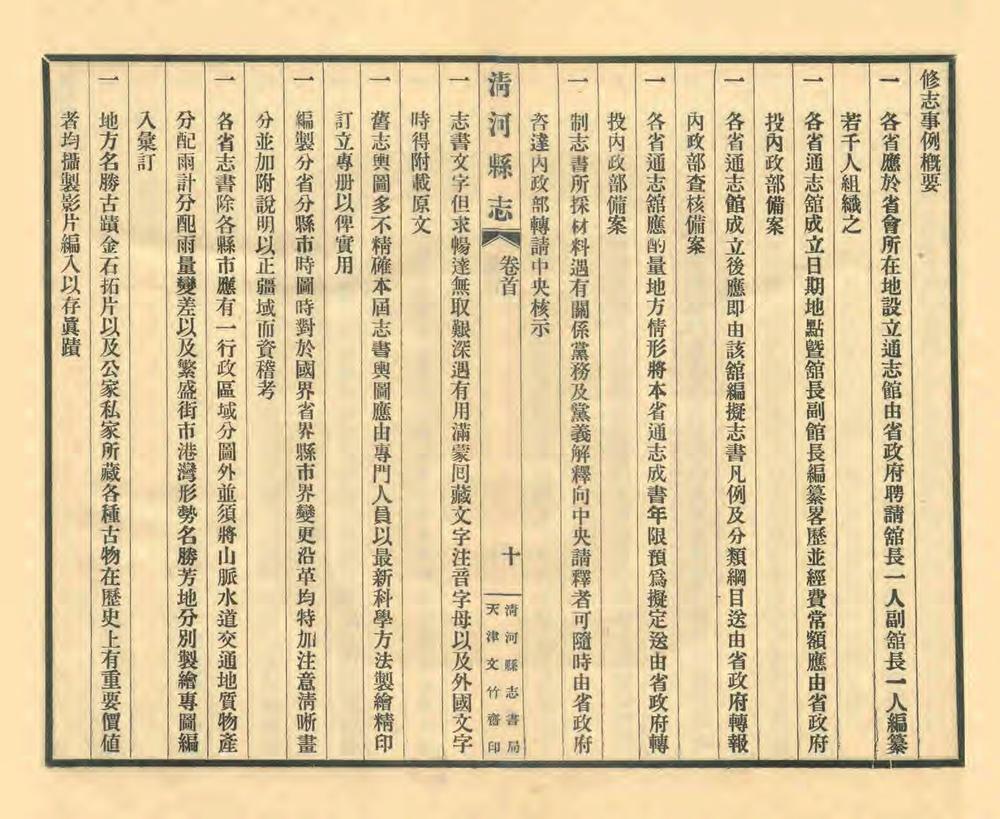 修志事例槪要
一　各省應於省會所在地設立通志館由省政府聘請舘長一人副舘長一人編纂
若干人組織之
一　各省通志舘成立日期地點曁舘長副館長編纂畧歷並經費常額應由省政府
投內政部備案
一　各省通志館成立後應即由該舘編擬志書凡例及分類綱目送由省政府轉報
內政部查核備案
一　各省通志舘應酌量地方情形將本省通志成書年限預爲擬定送由省政府轉
投內政部備案
一　制志書所採材料遇有關係黨務及黨義解釋向中央請釋者可隨時由省政府
咨達內政部轉請中央核示
淸河縣志
卷首
十
淸河縣志書局
天津文竹齋印
一　志書文字但求暢達無取艱深遇有用滿蒙囘藏文字注音字母以及外國文字
時得附載原文
一　舊志輿圖多不精確本屆志書輿圖應由專門人員以最新科學方法製繪精印
訂立專册以俾實用
一　編製分省分縣市時圖時對於國界省界縣市界變更沿革均特加注意淸晰畫
分並加附說明以正疆域而資稽考
一　各省志書除各縣市應有一行政區域分圖外並須將山脈水道交通地質物產
分配雨計分配雨量變差以及繁盛街市港灣形勢名勝芳地分別製繪專圖編
入彙訂
一　地方名勝古蹟金石拓片以及公家私家所藏各種古物在歷史上有重要價値
者均攝製影片編入以存眞蹟